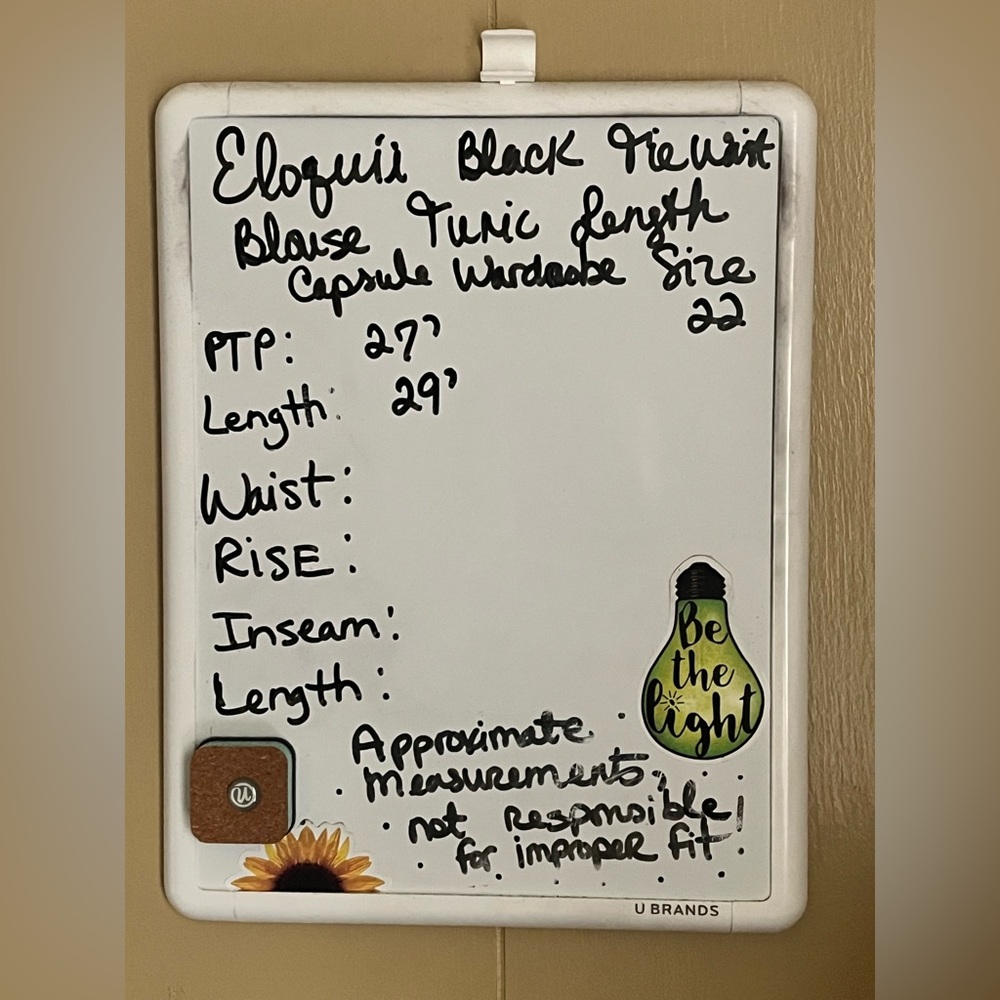 Eloquii Black Tie Waist
Blouse Tunic Length
Capsule Wardrobe Size
22
PTP: 27"
Length: 29"
Waist:
RISE:
Inseam:
Length:
Be
the
light
Approximate
Measurements,
not responsible
for improper fit.
U
U BRANDS